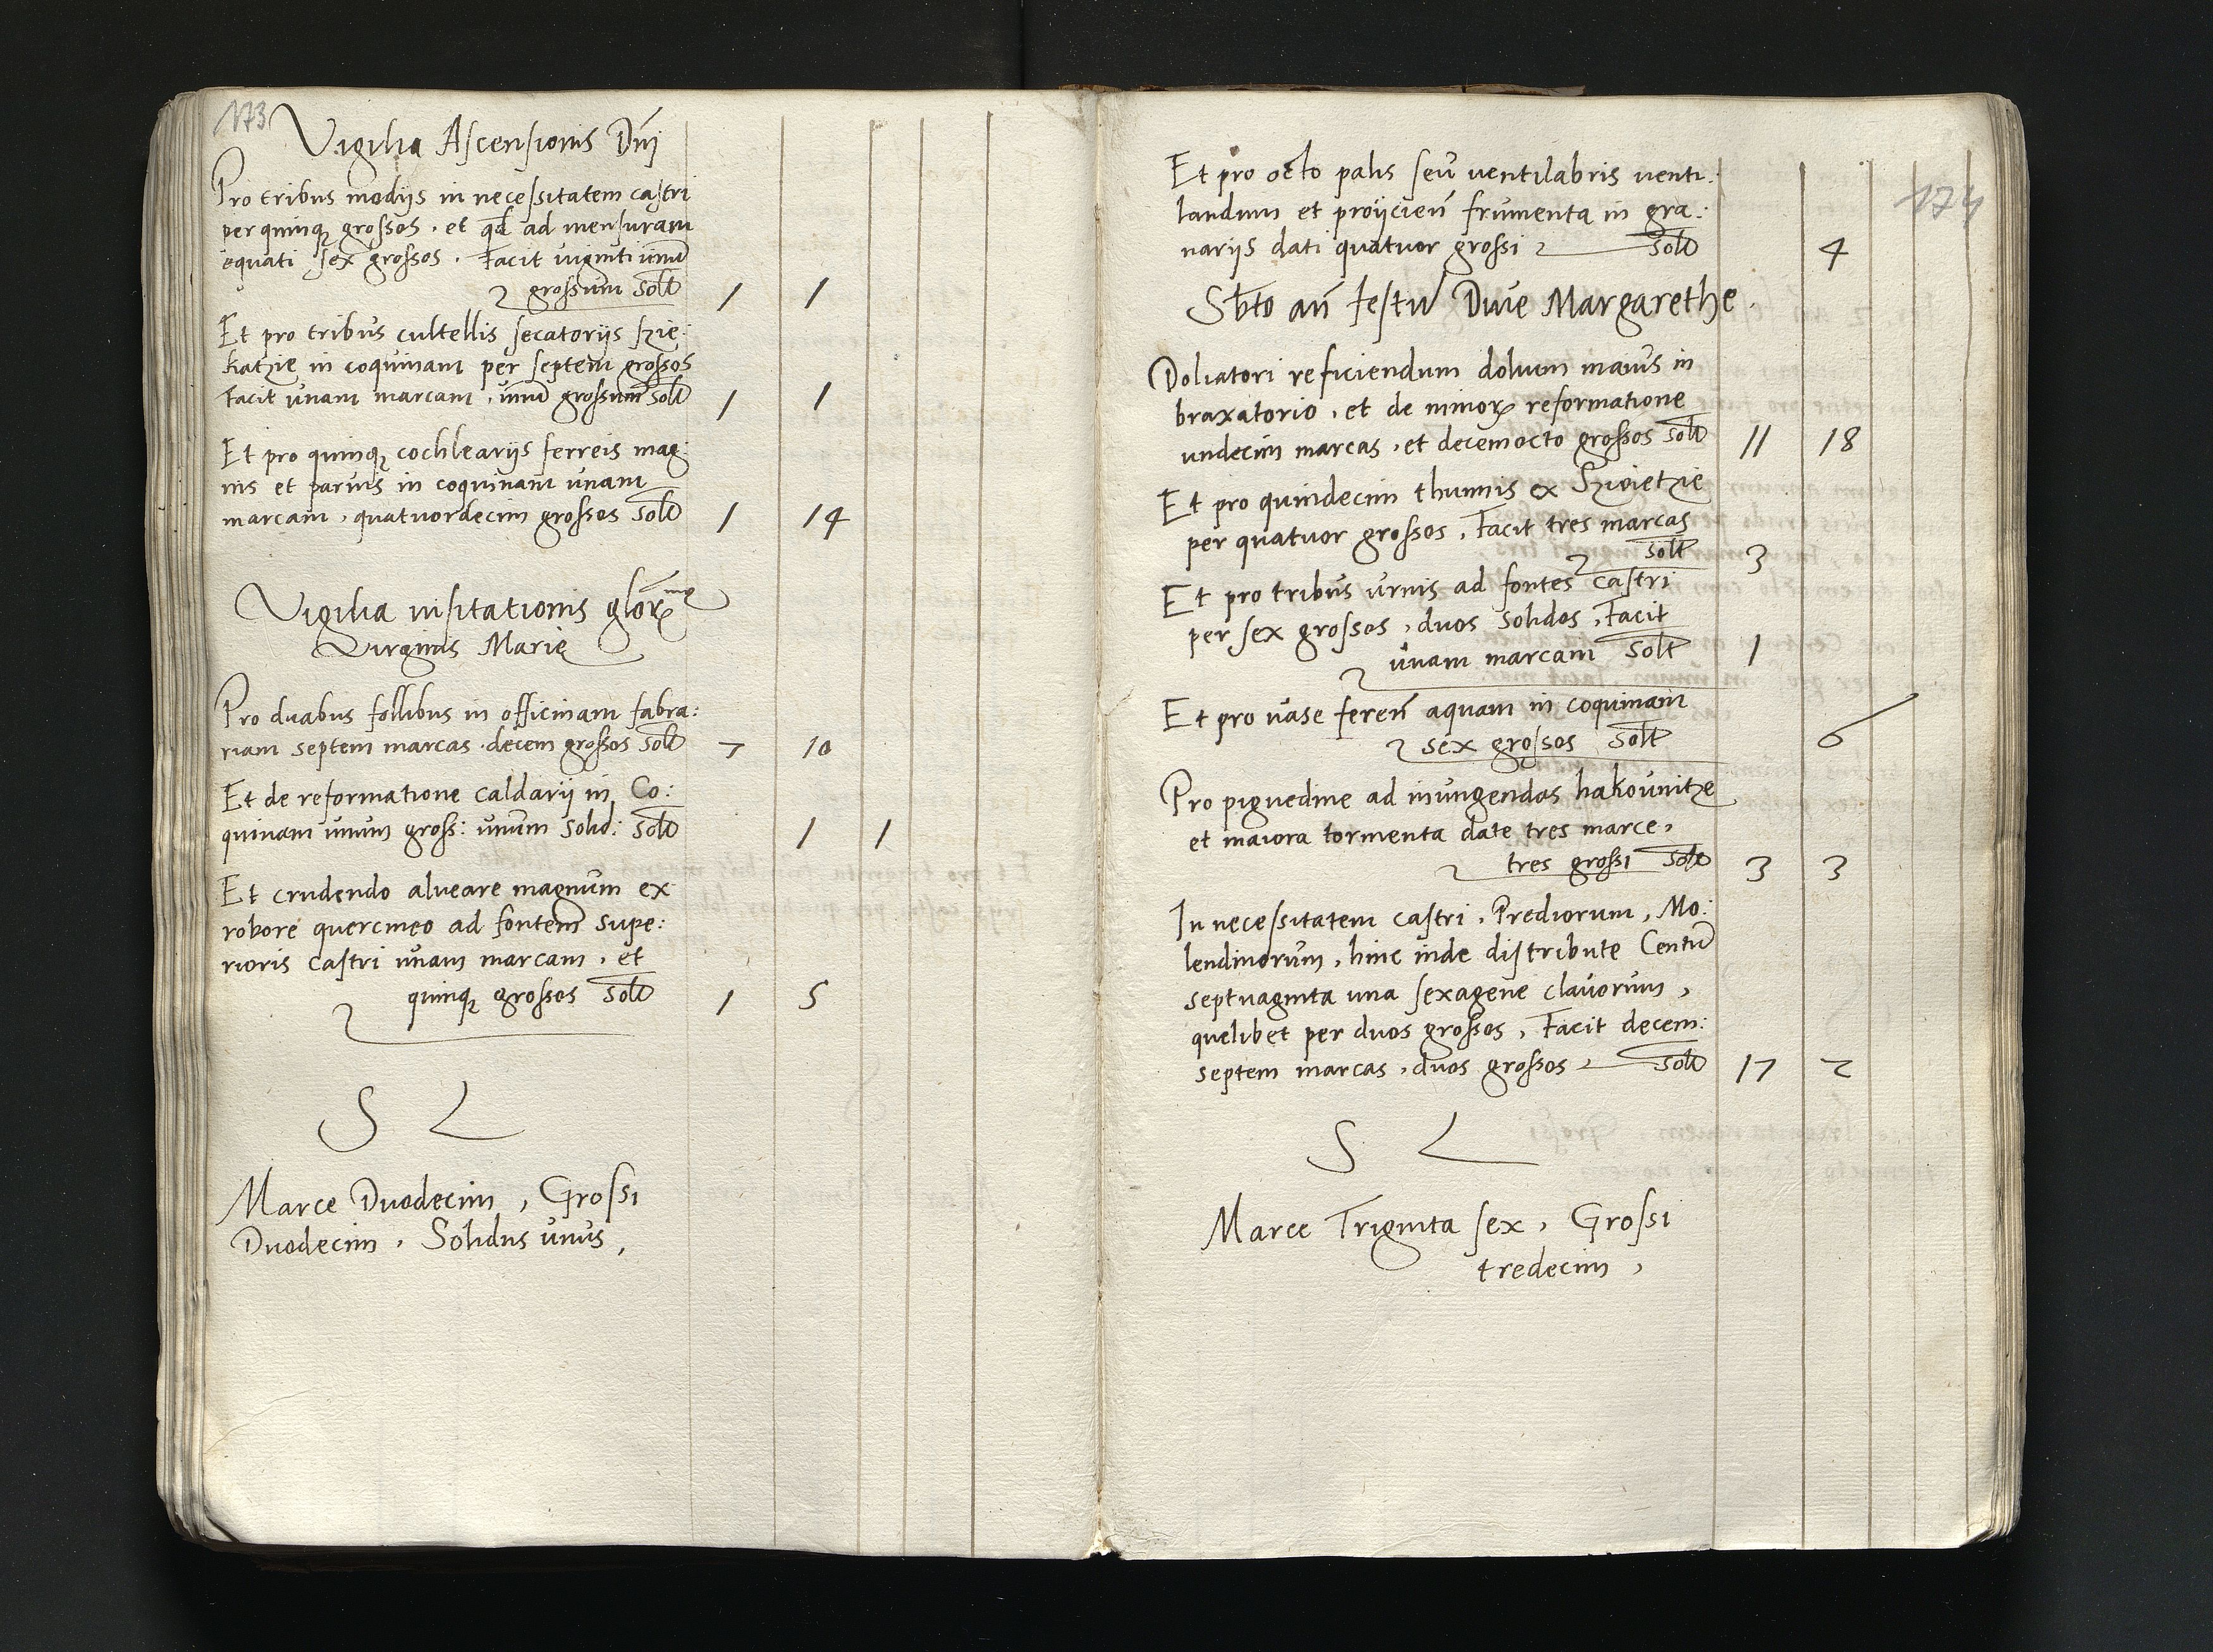 173
Vigilia Ascensionis Dnī
Pro tribus modijs in necessitatem castri
per quinqꝫ grossos, et qd ad mensuram
equati sex grossos. Facit viginti unū
grossum solt 1 1
Et pro tribus cultellis secatorijs
katzie in coquinam per septem grossos
Facit unam marcam, unū grossum solt 1 1
Et pro quinqꝫ cochlearijs ferreis mag:
nis et parvis in coquinam unam
marcam, quatuordecim grossos solt 1 14
Vigilia visitationis
Virginis Marię
Pro duabus follibus in officinam fabra:
riam septem marcas decem grossos solt 7 10
Et de reformatione caldarij in Co:
quinam unum gross: unum solid: solt 1 1
Et crudendo alveare magnum ex
robore quercineo ad fontem supe:
rioris castri unam marcam, et
quinqꝫ grossos solt 1 5
S L
Marce Duodecim, Grossi
Duodecim, Solidus unus,
174
Et pro octo palis seu ventilabris venti:
landum et proijcien̄ frumenta in gra:
narijs dati quatuor grossi solt 4
Sbto an̄ festū Dive Margarethe.
Doliatori reficiendum dolium maius in
braxatorio, et de minorꝫ reformatione
undecim marcas, et decemocto grossos solt 11 18
Et pro quindecim thunnis ex
per quatuor grossos, Facit tres marcas
solt 3
Et pro tribus urnis ad fontes castri
per sex grossos, duos solidos, Facit
unam marcam solt 1
Et pro vase feren̄ aquam in coquinam
sex grossos solt 6
Pro pigvedine ad inungendas hakovnitze
et maiora tormenta date tres marce,
tres grossi solt 3 3
In necessitatem castri, Prediorum, Mo:
lendinorum, hinc inde distribute Centū
septuaginta una sexagene clavorum,
quelibet per duos grossos, Facit decem:
septem marcas, duos grossos solt 17 2
S L
Marce Triginta sex, Grossi
tredecim,